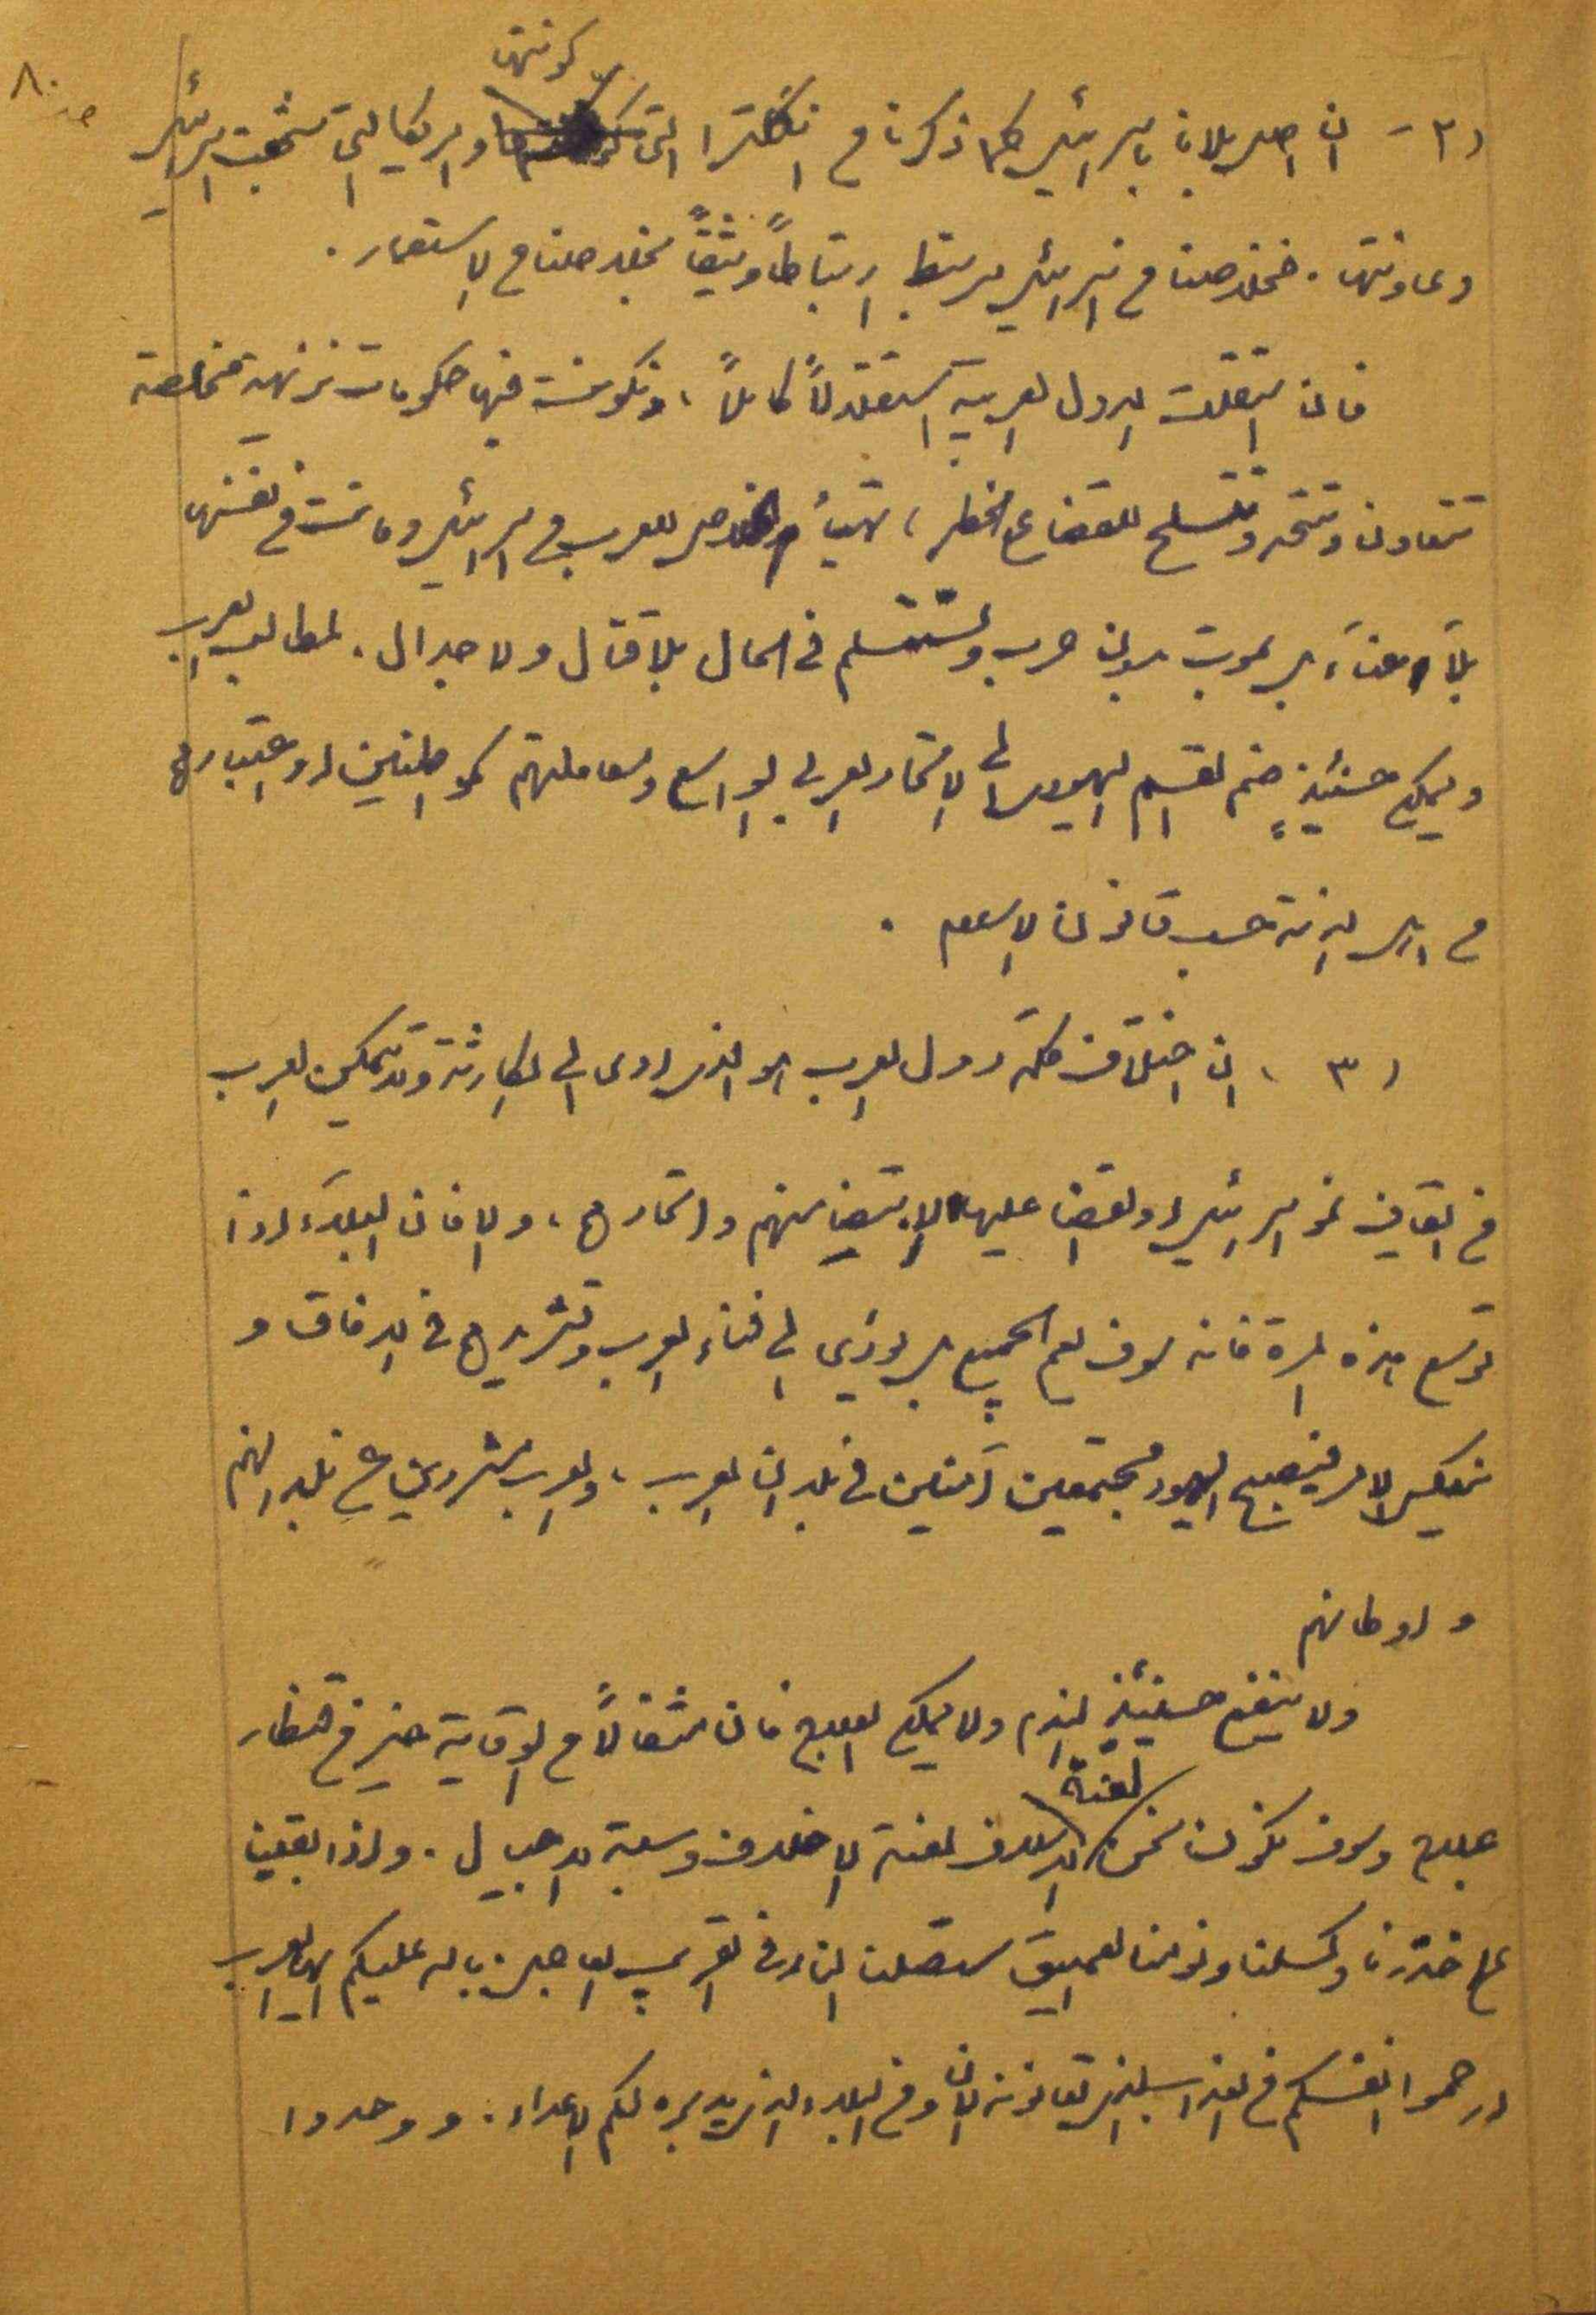 ص ٨٠
(٢) - ان اصل بلانا باسرائيل كما ذكرنا من انكلترا التي كونتها وامريكا التي شجعت اسرائيل
وعاونتها . فخلاصنا من اسرائيل مرتبط ارتباطاً وثيقاً بخلاصنا من الاستعمار .
فان استقلت الدول العربية استقلالاً كاملاً ، وتكونت فيها حكومات نزيهة مخلصة
تتعاون وتتحد وتتسلح للقضاء على الخطر ، تهيأ الخلاص للعرب من اسرائيل وماتت من نفسها
بلا عناء بل تموت بدون حرب وتستسلم في الحال بلا قتال ولا جدال . لمطاليب العرب
ويمكن حينئذٍ ضم القسم اليهودي الى الاتحاد العربي الواسع ومعاملتهم كمواطنين او اعتبارهم
من اهل الذمة حسب قانون الاسلام .
(٣) ان اختلاف كلمة دول العرب هو الذي ادى الى الكارثة ولا يتمكن العرب
من ايقاف نمو اسرائيل او القضاء عليها الا بتضامنهم واتحادهم ، والا فان البلاء اذا
توسع هذه المرة فانه سوف يعم الجميع بل يؤدي الى فناء العرب وتشريدهم في الافاق و
ينعكس الامر فيصبح اليهود مجتمعين آمنين في بلدان العرب ، والعرب مشردين عن بلدانهم
و اوطانهم
ولا ينفع حينئذٍ الندم ولا يمكن العلاج فان مثقالاً من الوقاية خير من قنطار
علاج وسوف نكون نحن لعنة الاسلاف لعنة الاخلاف وسبة الاجيال . واذا بقينا
على خدرنا وكسلنا ونومنا العميق ستصلنا النار في القريب العاجل بالله عليكم ايها العرب
ارحموا انفسكم من العذاب الذي تعانونه الان ومن البلاء الذي يدبره لكم الاعداء . ووحدوا